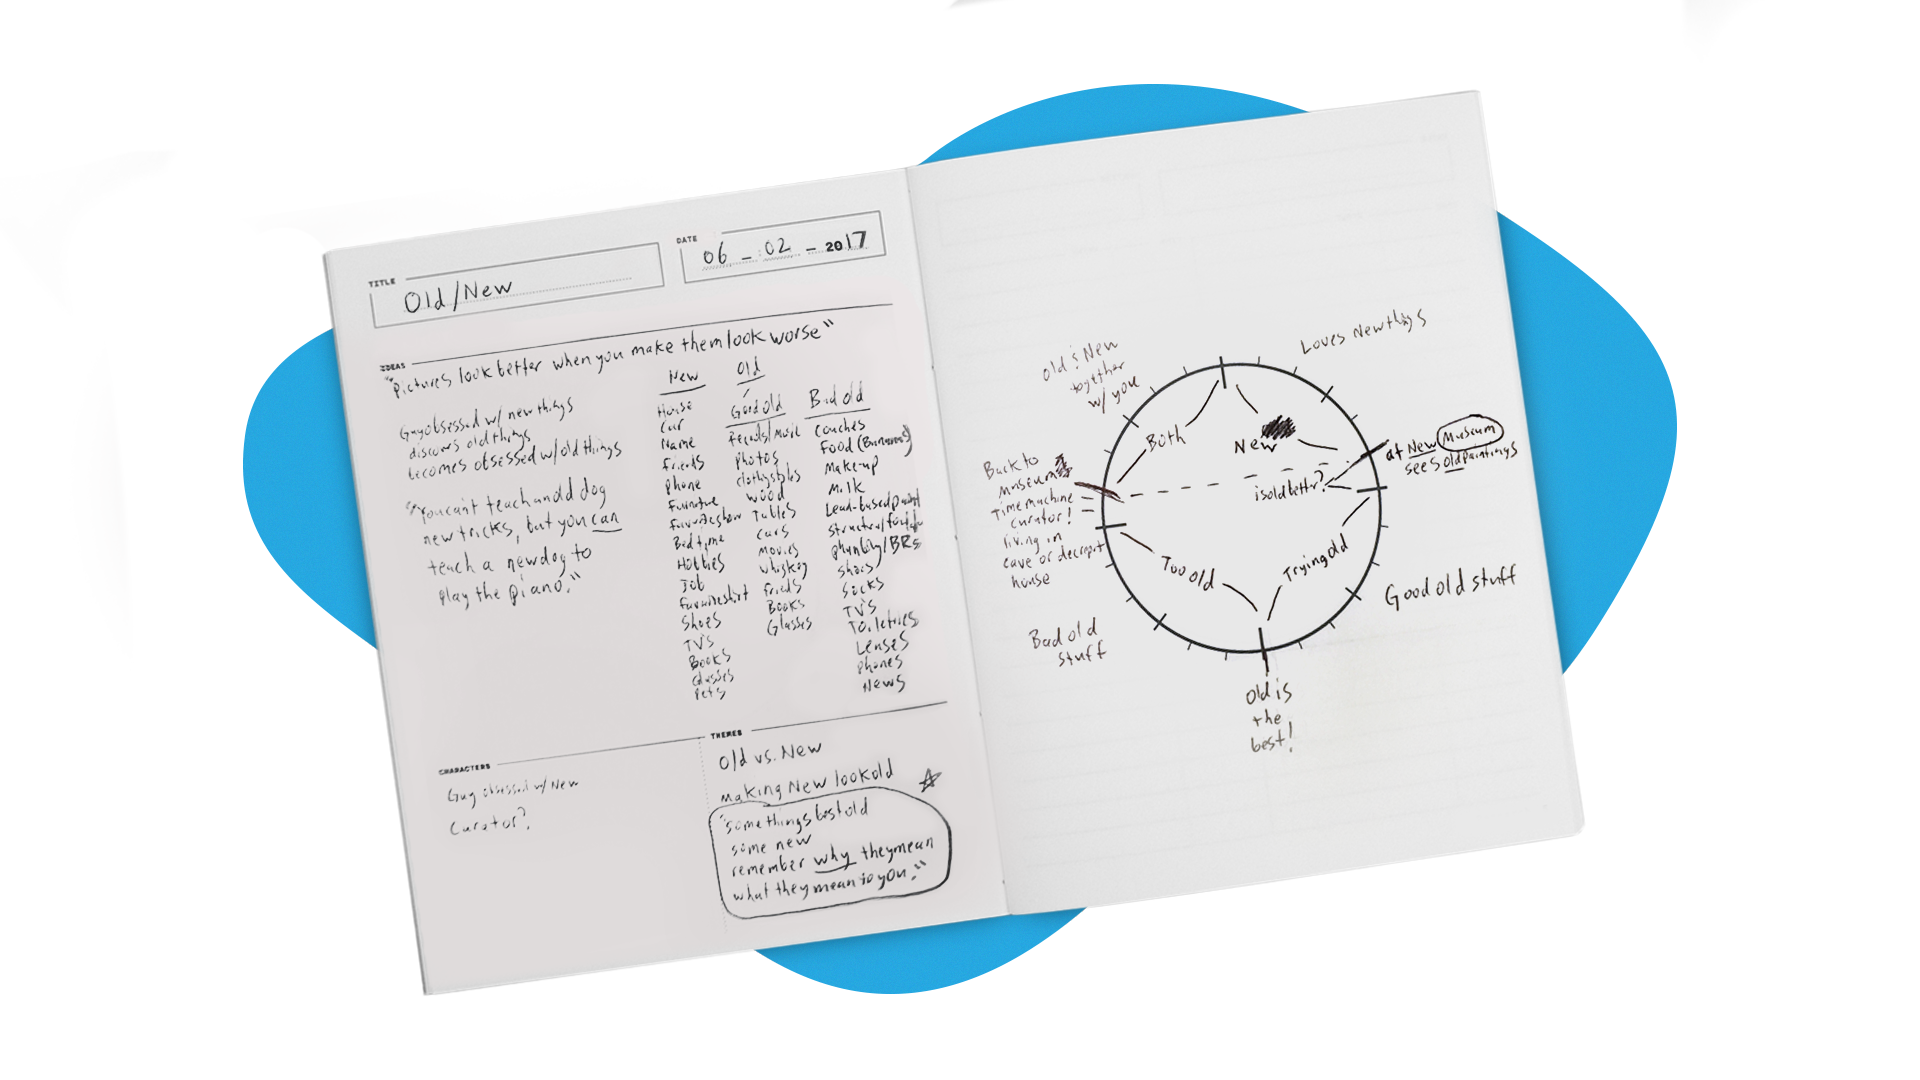 TITLE
Old/New
DATE
06 - 02 - 2017
IDEAS
"Pictures look better when you make them look worse"
Guy obsessed w/ new things
discovers old things
becomes obsessed w/ old things
"You can't teach an old dog
new tricks, but you can
teach a new dog to
play the piano."
New
House
Car
Name
Friends
Phone
Furniture
Favorite show
Bedtime
Hobbies
Job
Favorite shirt
Shoes
TV's
Books
Glasses
Pets
Old
Good old
Records/Music
Photos
clothing styles
Wood
Tables
Cars
Movies
Whiskey
Friends
Books
Glasses
Bad old
Couches
Food (Bananas)
Make-up
Milk
Lead-based paint
Structure/
plumbing/BRs
Shoes
Socks
TV's
Toiletries
Lenses
Phones
News
CHARACTERS
Guy obsessed w/ New
Curator?
THEMES
Old vs. New
Making New look old
"some things best old
some new
remember why they mean
what they mean to you."
Old & New
together
w/ you
Loves New things
Both
New
at New Museum
sees old paintings
is old better?
Back to
Museum
Time machine
curator!
living in
cave or decrepit
house
Too old
Trying old
Good old stuff
Bad old
stuff
Old is
the
best!